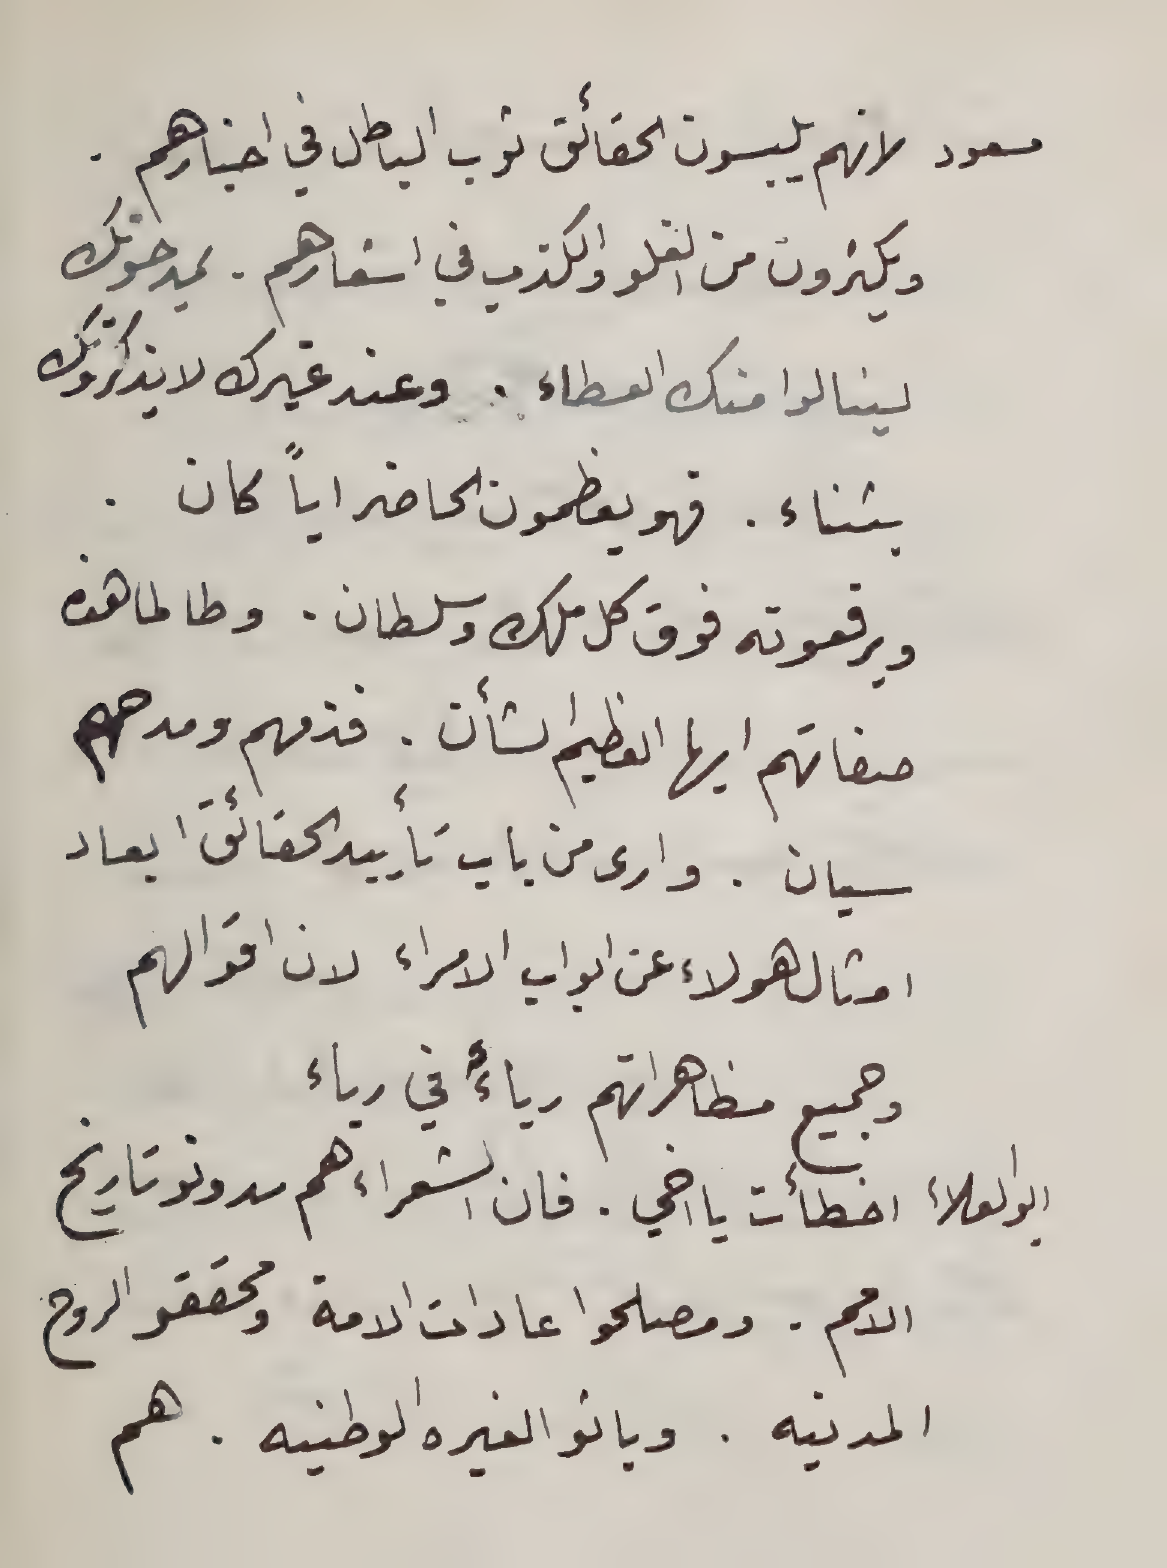 مسعود لانهم يلبسون الحقائق ثوب الباطل في اخبارهم .
ويكثرون من الغلو والكذب في اشعارهم . يمدحونك
لينالوا منك العطاء . وعند غيرك لا يذكرونك
بثناء . فهو يعظمون الحاضر اياً كان .
ويرفعونه فوق كل ملك وسلطان . وطالما هذه
صفاتهم ايها العظيم الشأن . فذمهم ومدحهم
سيان . وارى من باب تأييد الحقائق ابعاد
امثال هولاء عن ابواب الامراء لان اقوالهم
وجميع مظاهراتهم رياءٌ في رياء
ابو العلاء اخطأت يا اخي . فان الشعراء هم مدونو تاريخ
الامم . ومصلحوا عادات الامة ومحققو الروح
المدنيه . وباثو الغيره الوطنيه . هم